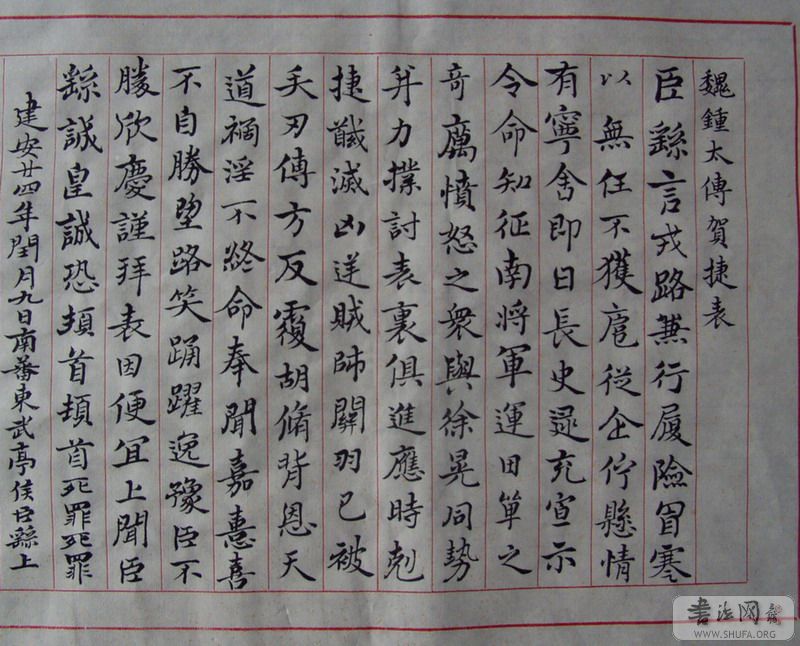 魏鍾太傳賀捷表
臣繇言戎路兼行履險冒寒
以無任不獲扈從企佇懸情
有寧舍即日長史逯充宣示
令命知征南將軍運田單之
奇厲憤怒之衆與徐晃同勢
并力撲討表裏俱進應時剋
捷馘滅凶逆賊帥關羽已被
矢刃傅方反覆胡脩背恩天
道禍淫不終命奉聞嘉憙喜
不自勝望路笑踊躍逸豫臣不
勝欣慶謹拜表因便宜上聞臣
繇誠皇誠恐頓首頓首死罪死罪
建安廿四年閏月九日南蕃東武亭侯臣繇上
書法网
WWW.SHUFA.ORG